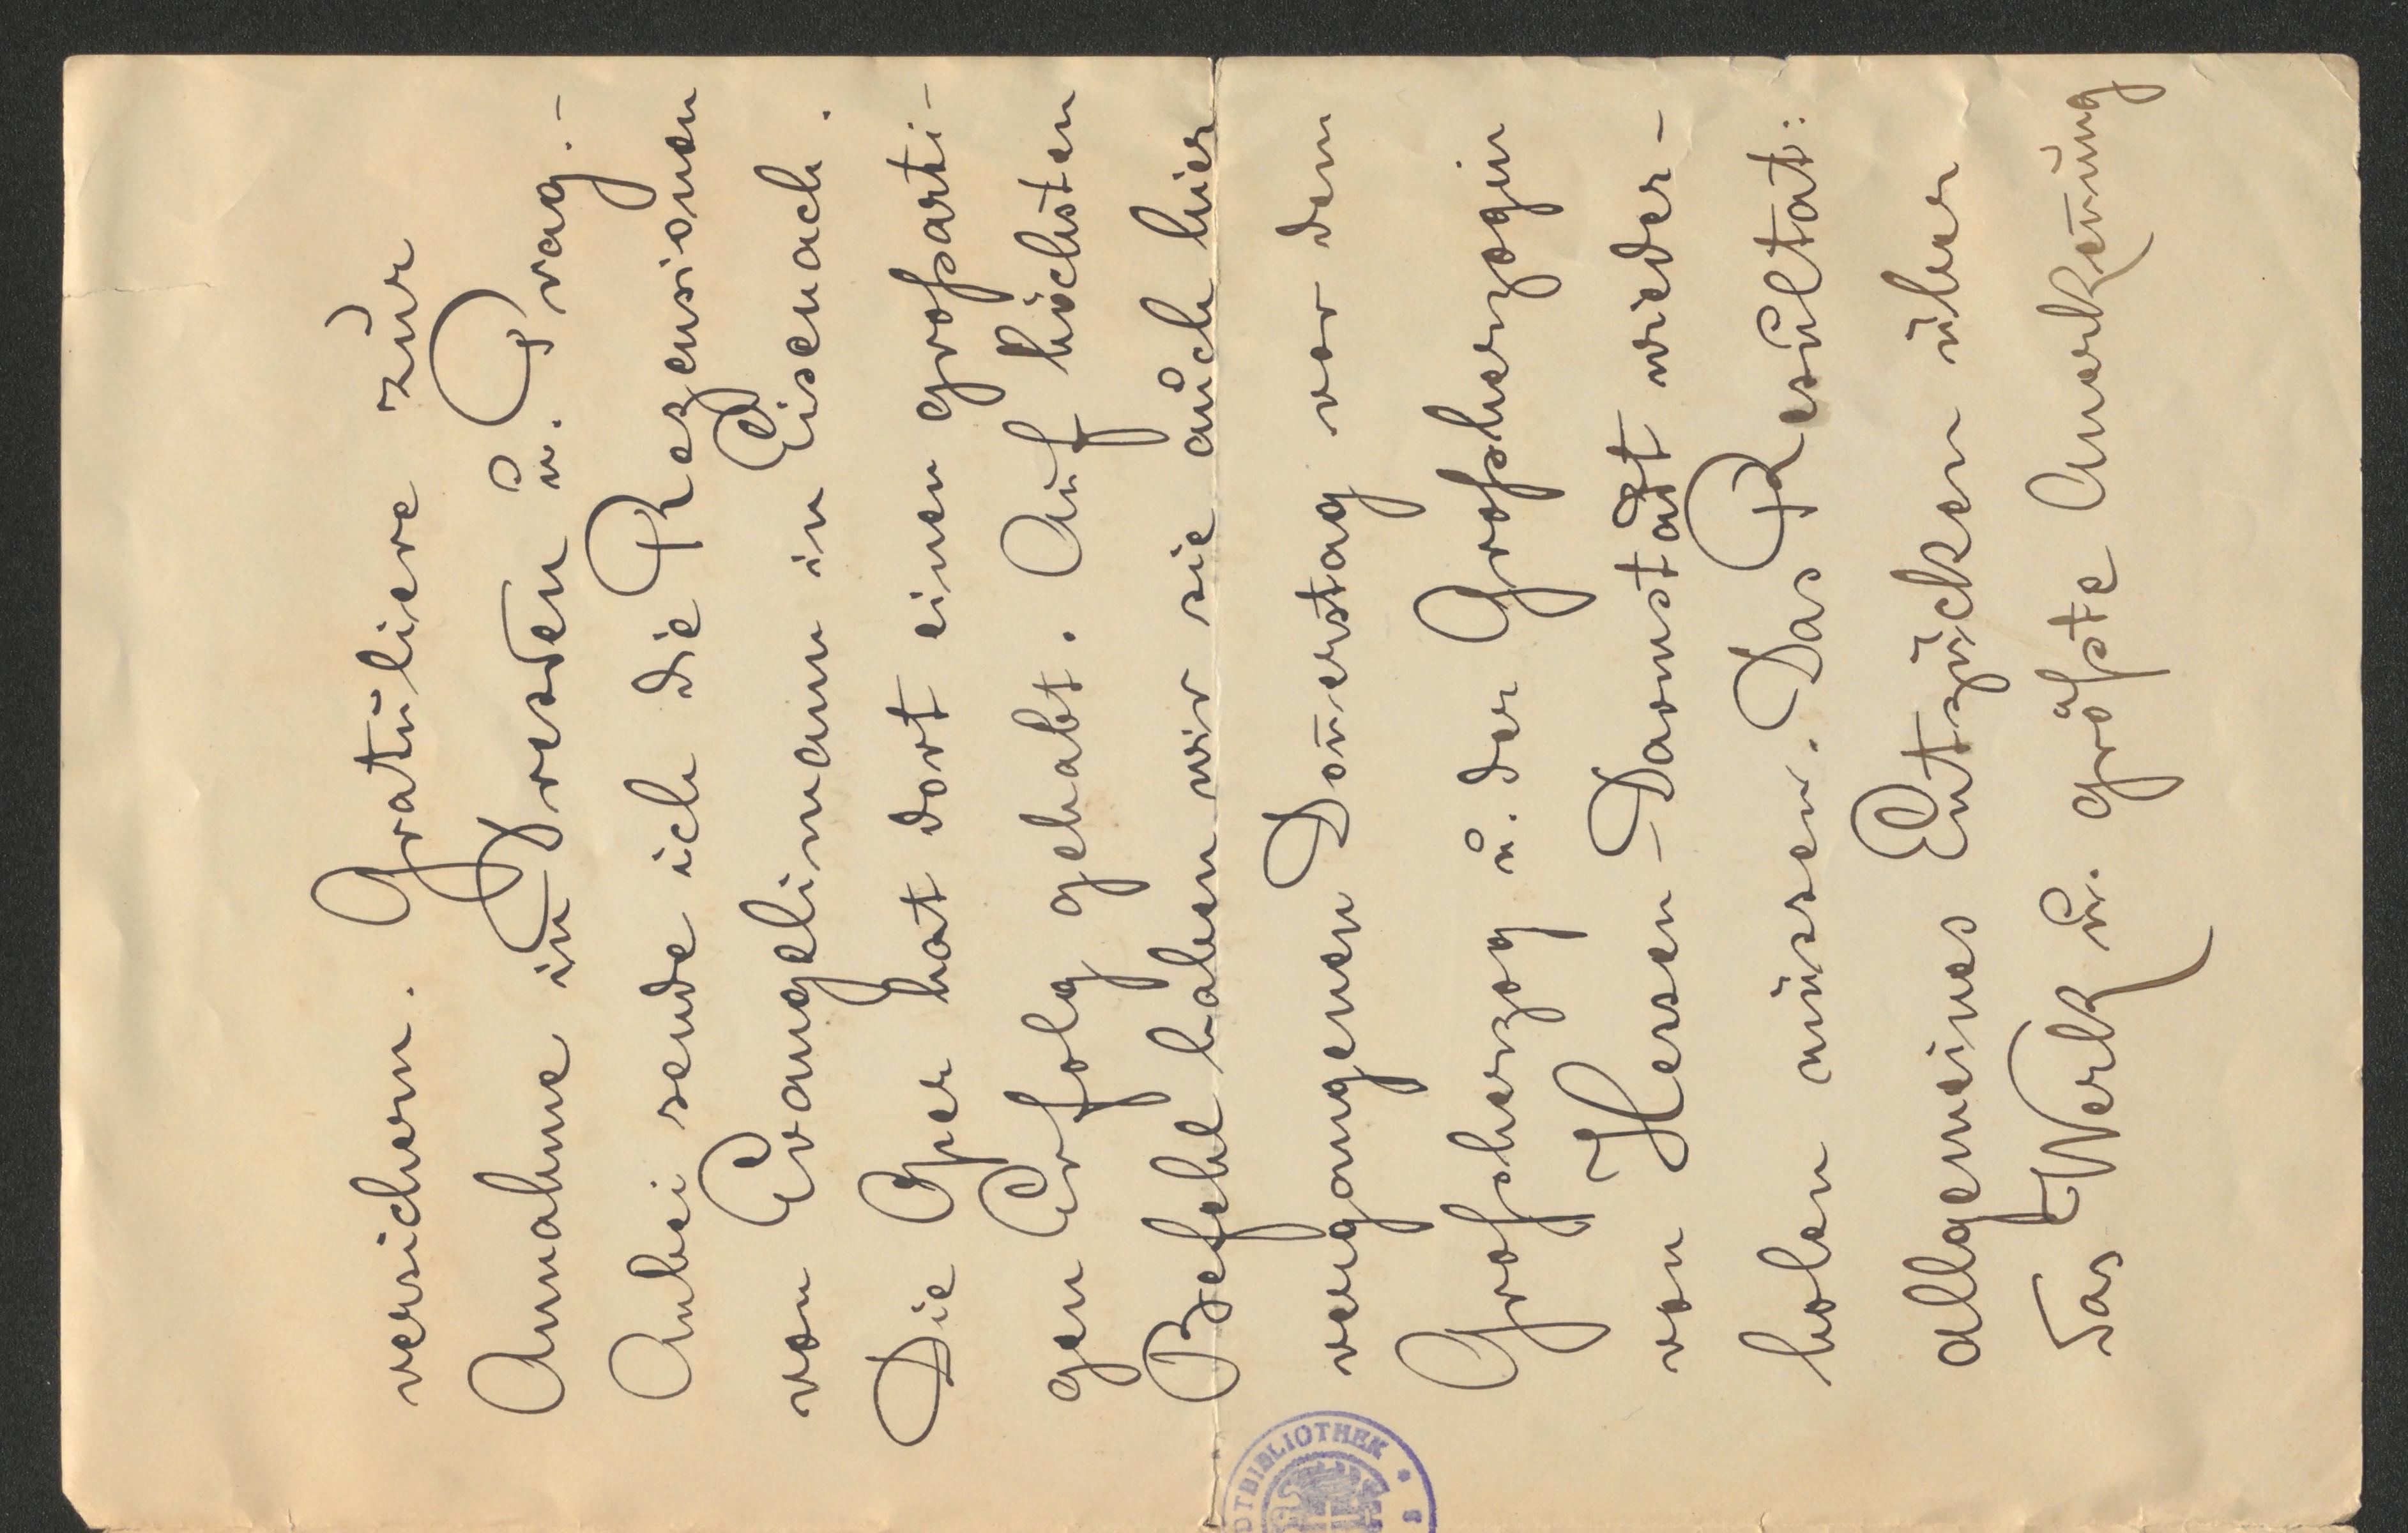 versichern. Gratuliere zur
Annahme in Dresden u. Prag. -
Anbei sende ich die Rezensionen
von Evangelimann in Eisenach.
Die Oper hat dort einen großarti-
gen Erfolg gehabt. Auf höchsten
Befehl haben wir sie auch hier
vergangenen Don̄erstag vor dem
Großherzog u. der Großherzogin
von Hessen-Darmstadt wieder-
holen müssen. Das Resultat:
allgemeines Entzücken über
das Werk u. größte Anerken̄ung
OTBIBLIOTHEK * S